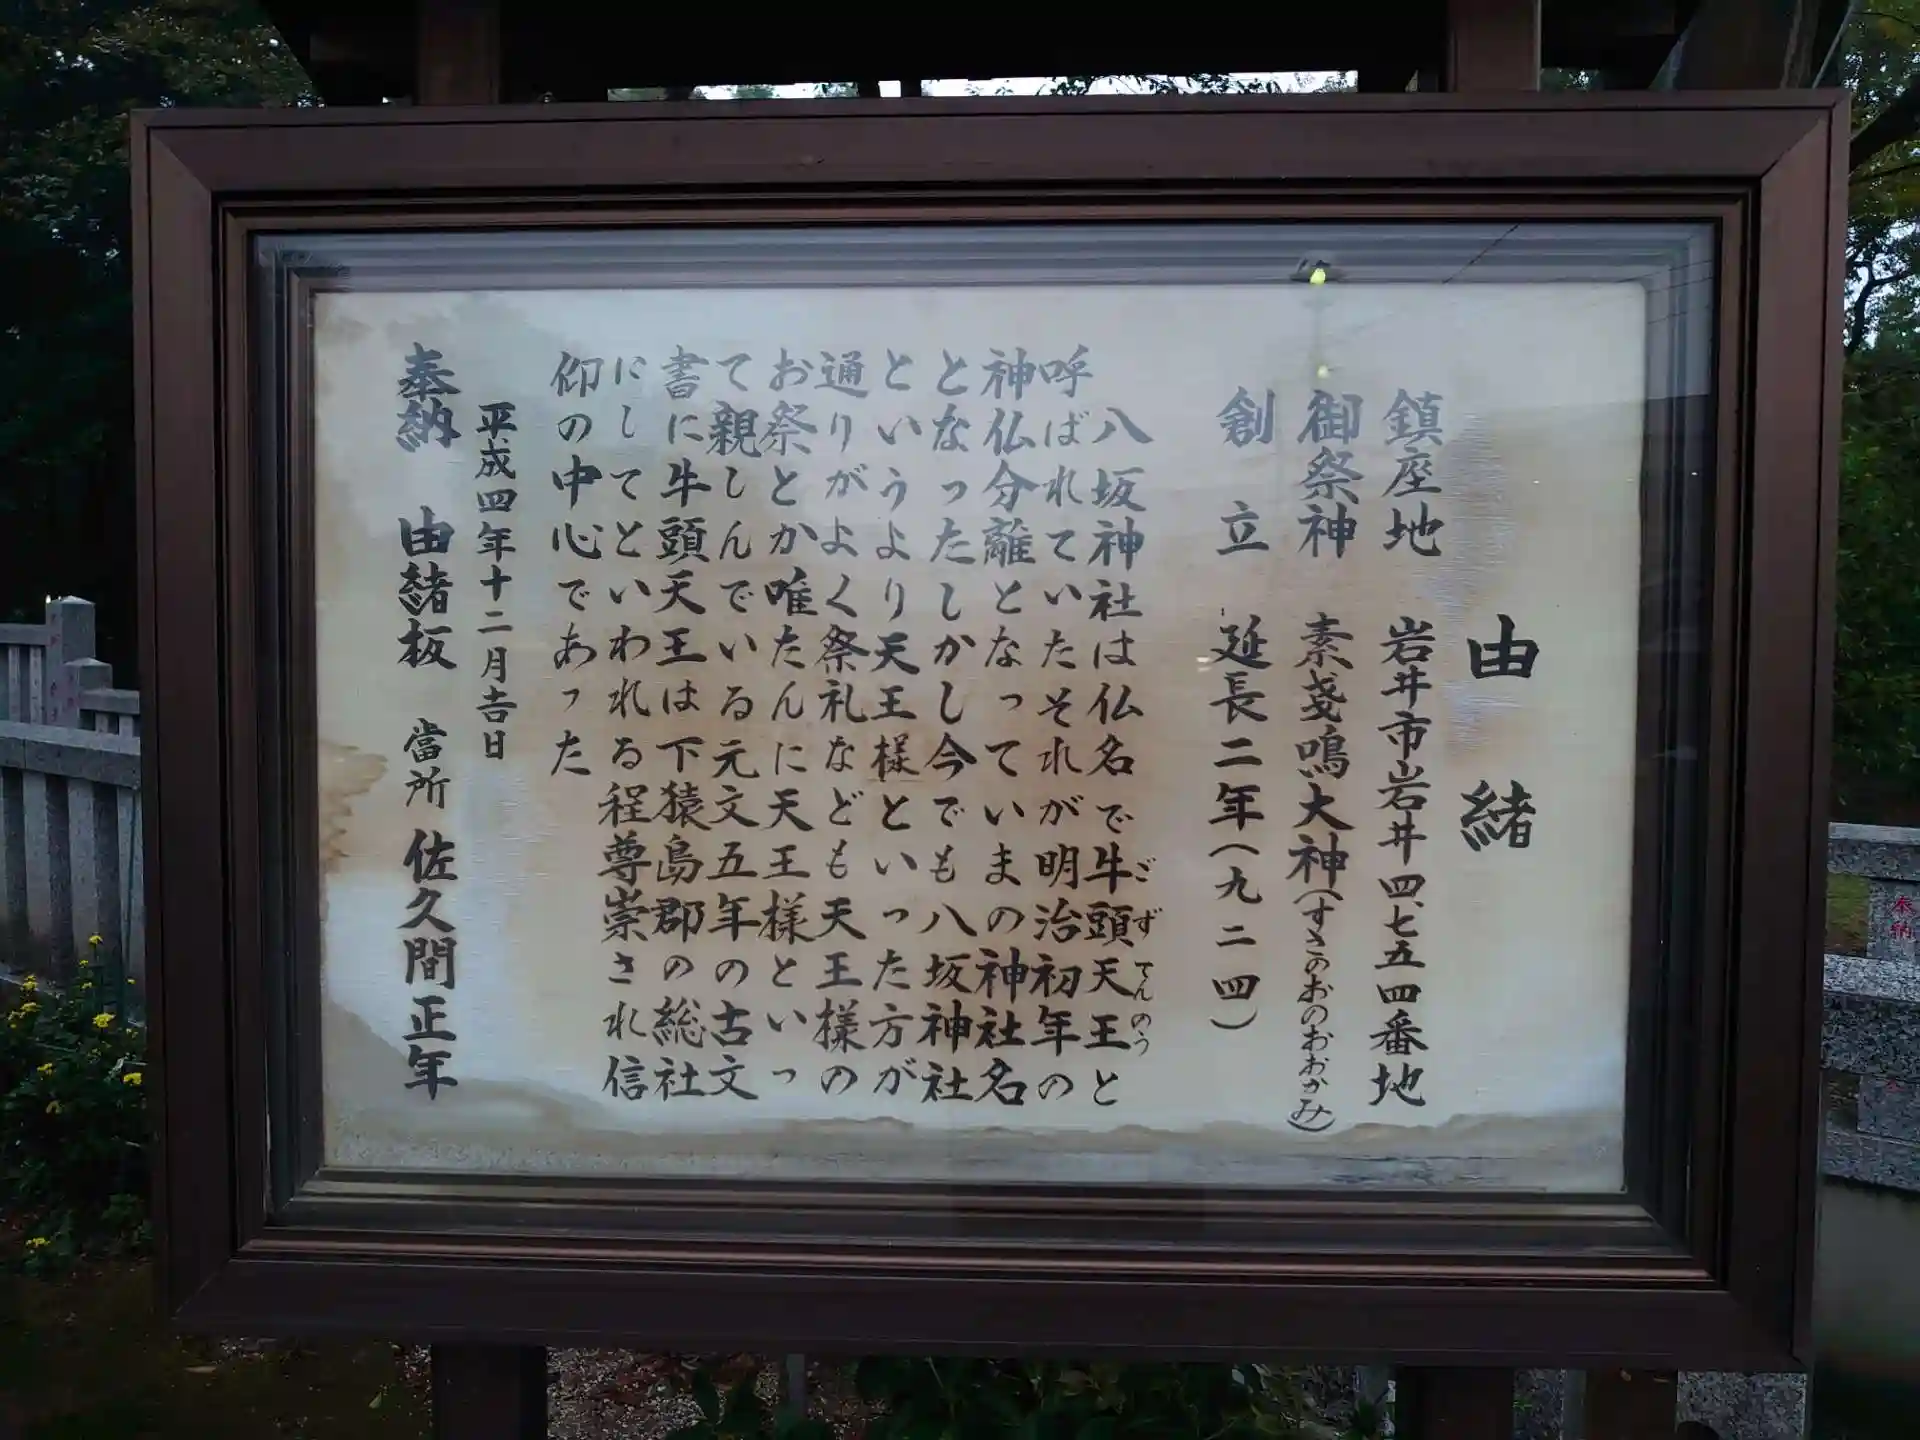 由緒
鎮座地 岩井市岩井四、七五四番地
御祭神 素戔鳴大神(すさのおのおおかみ)
創立 延長二年(九二四)
八坂神社は仏名で牛頭天王と
ごずてんのう
呼ばれていたそれが明治初年の
神仏分離となっていまの神社名
となったしかし今でも八坂神社
というより天王様といった方が
通りがよく祭礼なども天王様の
お祭とか唯たんに天王様といっ
て親しんでいる元文五年の古文
書に牛頭天王は下猿島郡の総社
にしてといわれる程尊崇され信
仰の中心であった
平成四年十二月吉日
奉納 由緒板 當所 佐久間正年
奉納